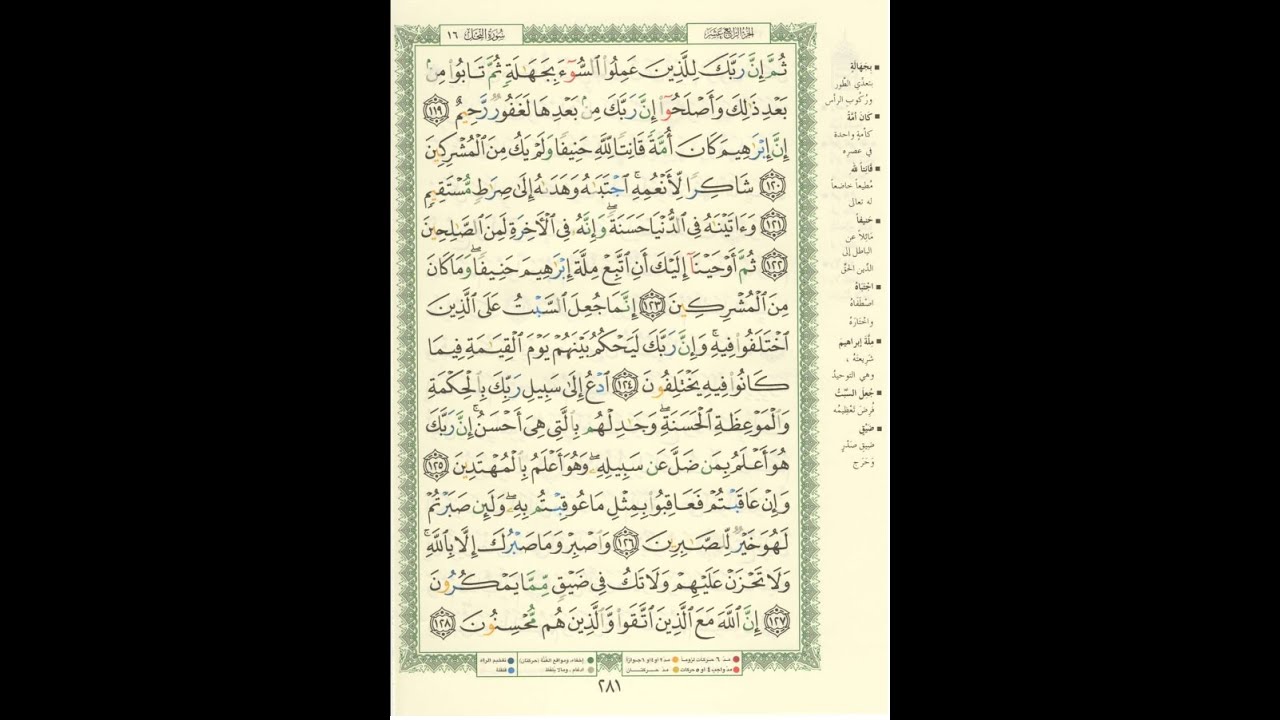 سُورَةُ النَّحْلِ ١٦
الجُزْءُ الرَّابِعَ عَشَرَ
ثُمَّ إِنَّ رَبَّكَ لِلَّذِينَ عَمِلُوا۟ ٱلسُّوٓءَ بِجَهَٰلَةٍ ثُمَّ تَابُوا۟ مِنۢ
بَعْدِ ذَٰلِكَ وَأَصْلَحُوٓا۟ إِنَّ رَبَّكَ مِنۢ بَعْدِهَا لَغَفُورٌ رَّحِيمٌ ١١٩
إِنَّ إِبْرَٰهِيمَ كَانَ أُمَّةً قَانِتًا لِّلَّهِ حَنِيفًا وَلَمْ يَكُ مِنَ ٱلْمُشْرِكِينَ
١٢٠ شَاكِرًا لِّأَنْعُمِهِ ۚ ٱجْتَبَىٰهُ وَهَدَىٰهُ إِلَىٰ صِرَٰطٍ مُّسْتَقِيمٍ
١٢١ وَءَاتَيْنَٰهُ فِى ٱلدُّنْيَا حَسَنَةً ۖ وَإِنَّهُۥ فِى ٱلْءَاخِرَةِ لَمِنَ ٱلصَّٰلِحِينَ
١٢٢ ثُمَّ أَوْحَيْنَآ إِلَيْكَ أَنِ ٱتَّبِعْ مِلَّةَ إِبْرَٰهِيمَ حَنِيفًا ۖ وَمَا كَانَ
مِنَ ٱلْمُشْرِكِينَ ١٢٣ إِنَّمَا جُعِلَ ٱلسَّبْتُ عَلَى ٱلَّذِينَ
ٱخْتَلَفُوا۟ فِيهِ ۚ وَإِنَّ رَبَّكَ لَيَحْكُمُ بَيْنَهُمْ يَوْمَ ٱلْقِيَٰمَةِ فِيمَا
كَانُوا۟ فِيهِ يَخْتَلِفُونَ ١٢٤ ٱدْعُ إِلَىٰ سَبِيلِ رَبِّكَ بِٱلْحِكْمَةِ
وَٱلْمَوْعِظَةِ ٱلْحَسَنَةِ ۖ وَجَٰدِلْهُم بِٱلَّتِى هِىَ أَحْسَنُ ۚ إِنَّ رَبَّكَ
هُوَ أَعْلَمُ بِمَن ضَلَّ عَن سَبِيلِهِۦ ۖ وَهُوَ أَعْلَمُ بِٱلْمُهْتَدِينَ ١٢٥
وَإِنْ عَاقَبْتُمْ فَعَاقِبُوا۟ بِمِثْلِ مَا عُوقِبْتُم بِهِۦ ۖ وَلَئِن صَبَرْتُمْ
لَهُوَ خَيْرٌ لِّلصَّٰبِرِينَ ١٢٦ وَٱصْبِرْ وَمَا صَبْرُكَ إِلَّا بِٱللَّهِ ۚ
وَلَا تَحْزَنْ عَلَيْهِمْ وَلَا تَكُ فِى ضَيْقٍ مِّمَّا يَمْكُرُونَ
١٢٧ إِنَّ ٱللَّهَ مَعَ ٱلَّذِينَ ٱتَّقَوا۟ وَّٱلَّذِينَ هُم مُّحْسِنُونَ ١٢٨
بِجَهَالَةٍ
بتعدّي الطَّور
وركُوبِ الرأس
كَانَ أُمَّةً
كأمةٍ واحدة
في عصره
قَانِتاً لله
مُطيعاً خاضعاً
له تعالى
حَنِيفاً
مَائلاً عن
الباطل إلى
الدِّين الحَقِّ
اجْتَبَاهُ
اصْطَفَاهُ
واخْتَارَهُ
مِلَّةَ إبراهيمَ
شَرِيعَتَهُ ،
وهي التوحيدُ
جُعِلَ السَّبْتُ
فُرِضَ تَعْظِيمُه
ضَيْقٍ
ضِيقِ صَدْرٍ
وَحَرَجٍ
مدّ ٦ حركات لزوماً
مدّ ٢ أو ٤ أو ٦ جوازاً
إخفاء، ومواقع الغُنَّة (حركتان)
تفخيم الراء
مدّ واجب ٤ أو ٥ حركات
مدّ حركتان
ادغام ، وما لا يُلفظ
قلقلة
٢٨١